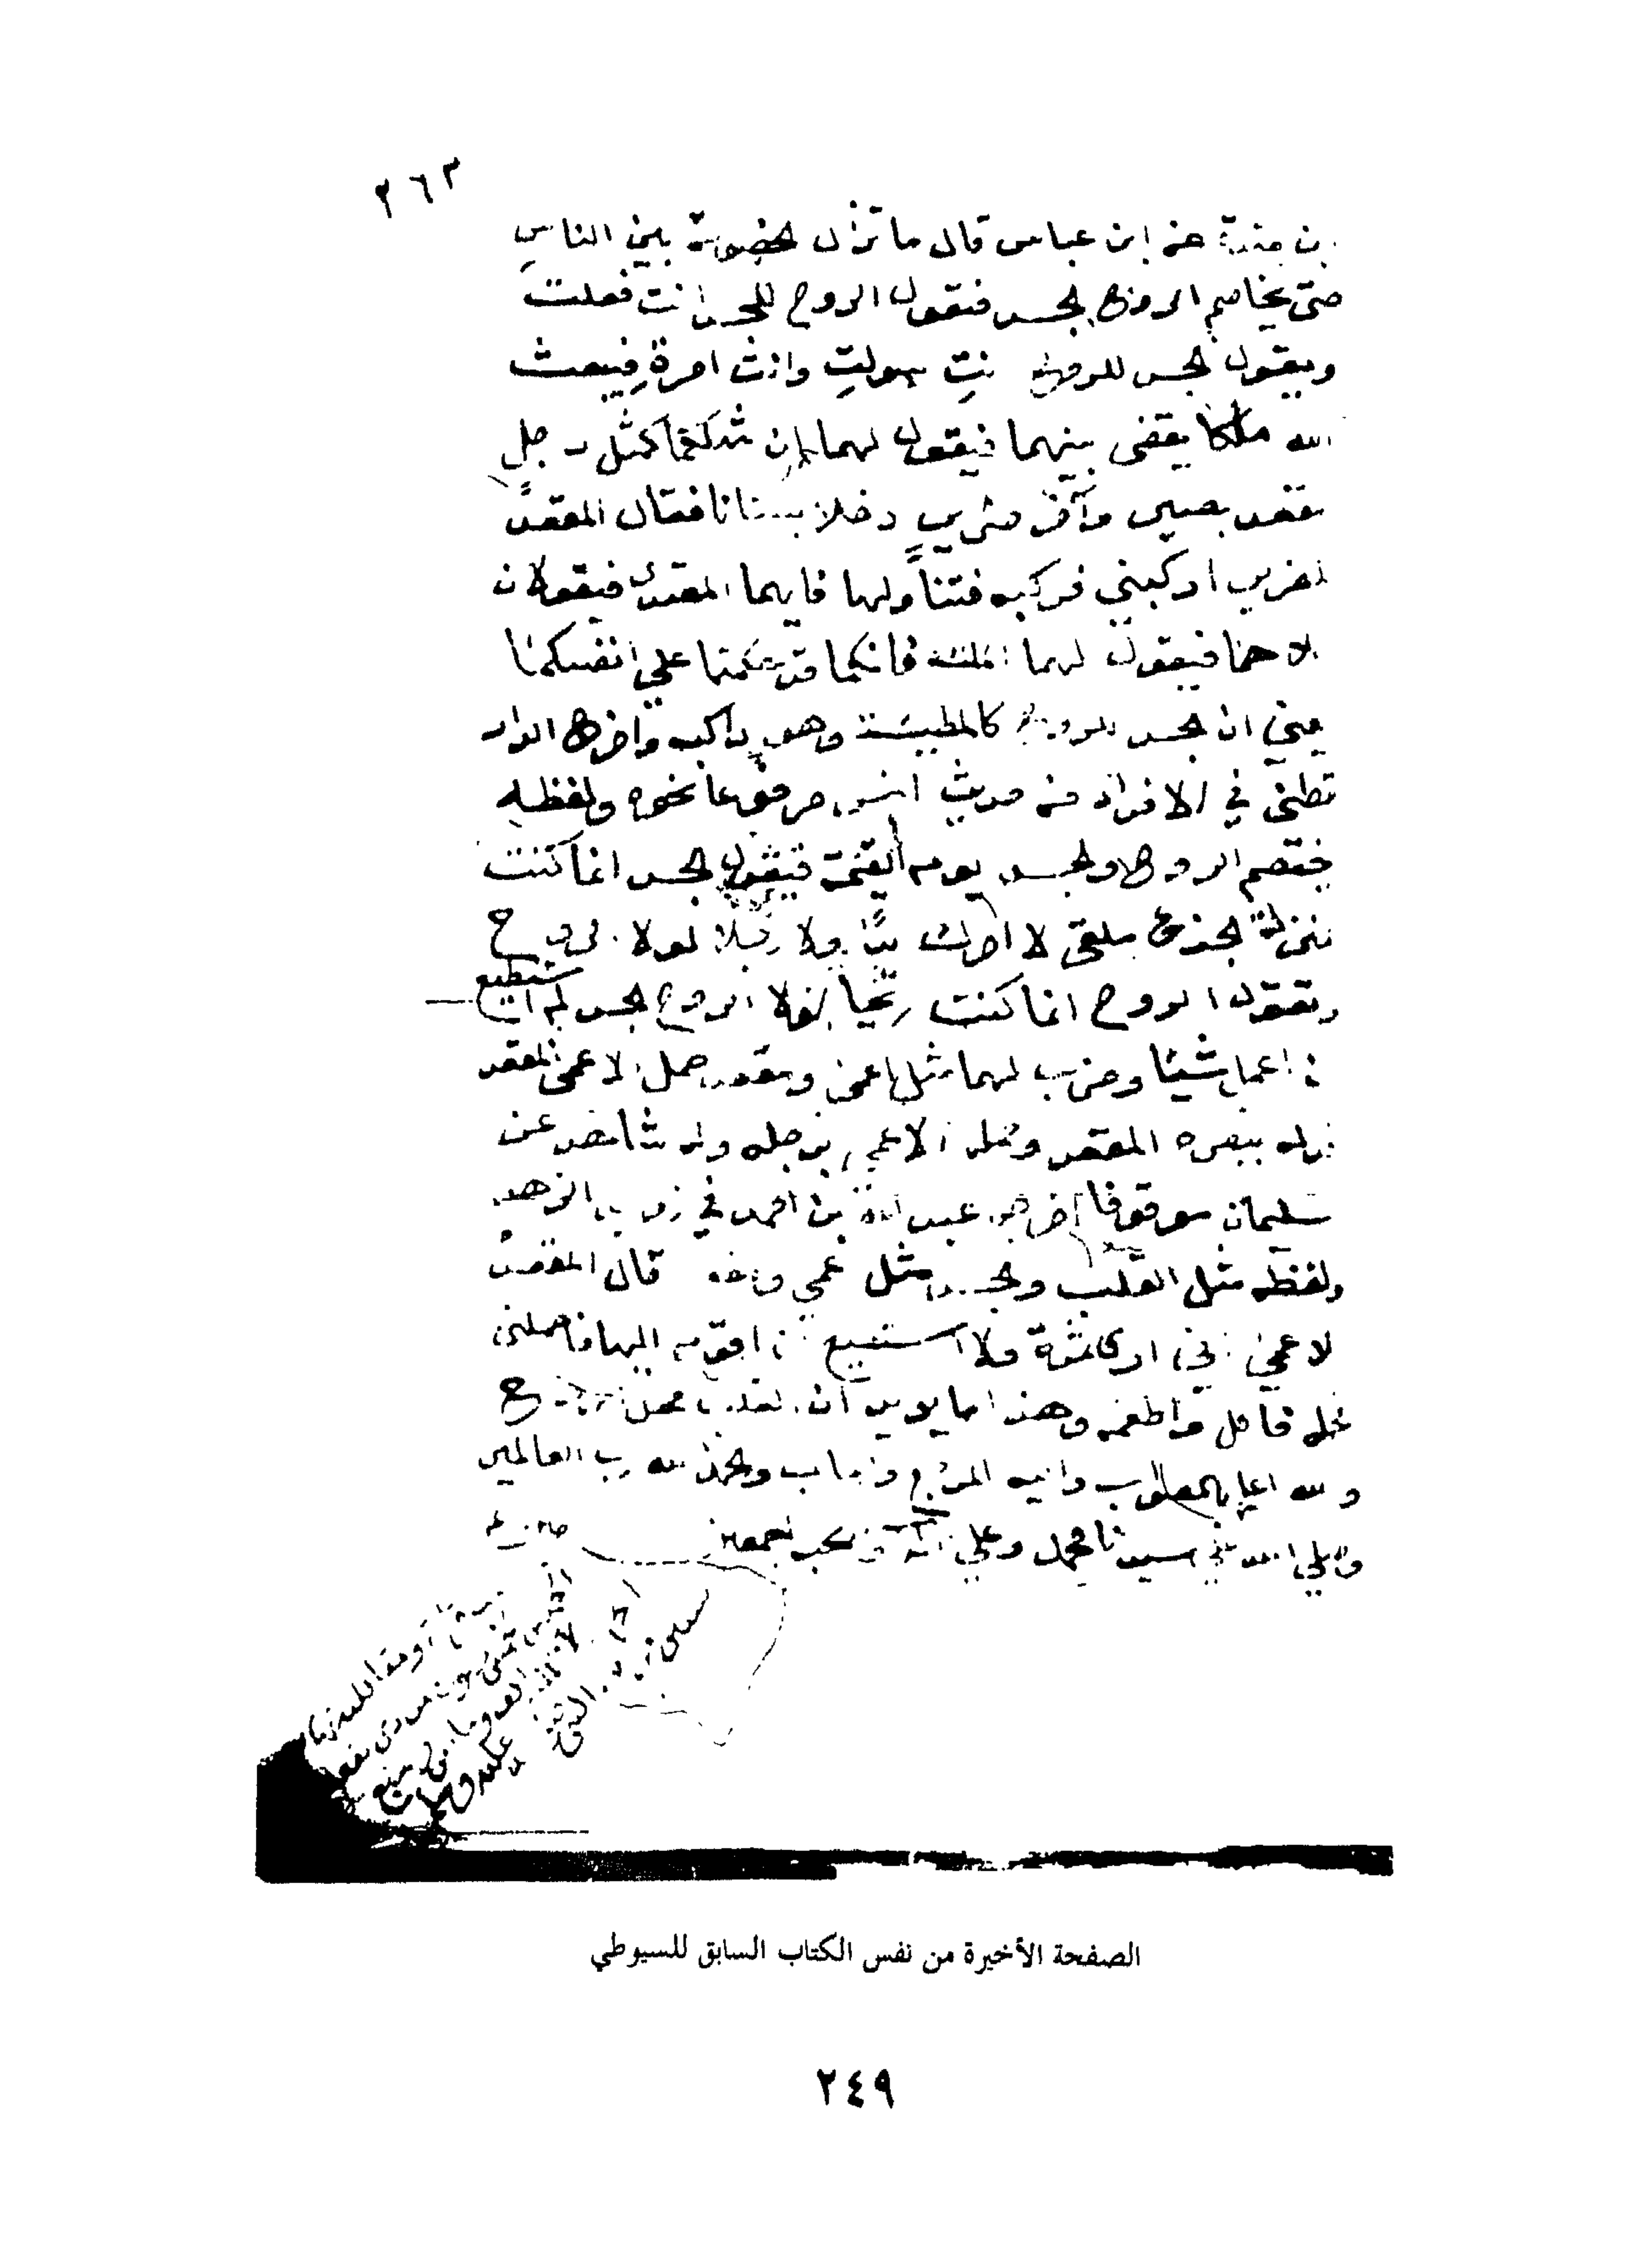 ٢٦٣
بن مندة عن ابن عباس قال ما تزال الخصومة بين الناس
حتى يخاصم الروح الجسد فتقول الروح للجسد انت فعلت
ويقول الجسد للروح انت سولت وانت امرة فيبعث
الله ملكا يقضي بينهما فيقول لهما ان مثلكما كمثل رجل
مقعد بصير وآخر ضرير دخلا بستانا فقال المقعد
للضرير اركبني فركبه فتناولها فايهما المعتدي فيقولان
كلاهما فيقول لهما الملك فانكما قد حكمتما علي انفسكما
يعني ان الجسد للروح كالمطية وهو راكبه واخرج الدار
قطني في الافراد من حديث انس مرفوعا نحوه ولفظه
يختصم الروح والجسد يوم القيمة فيقول الجسد انما كنت
بمنزلة الجذع ملقى لا احرك يدا ولا رجلا لولا الروح
وتقول الروح انما كنت ريحا لولا الجسد لم استطيع
ان اعمل شيئا وضرب لهما مثل اعمى ومقعد حمل الاعمى المقعد
فدله ببصره المقعد وحمله الاعمى برجله وله شاهد عن
سليمان موقوفا اخرجه عبد الله بن احمد في زوايد الزهد
ولفظه مثل القلب والجسد مثل اعمي ومقعد قال المقعد
لاعمى اني ارى ثمرة ولا استطيع ان اقوم اليها فاحملني
فحمله فاكل واطعمه وهذا مما يويد ان القلب محل الروح
والله اعلم بالصواب واليه المرجع والماب والحمد لله رب العالمين
وصلي الله علي سيدنا محمد وعلي اله وصحبه اجمعين
الصفحة الأخيرة من نفس الكتاب السابق للسيوطي
٢٤٩